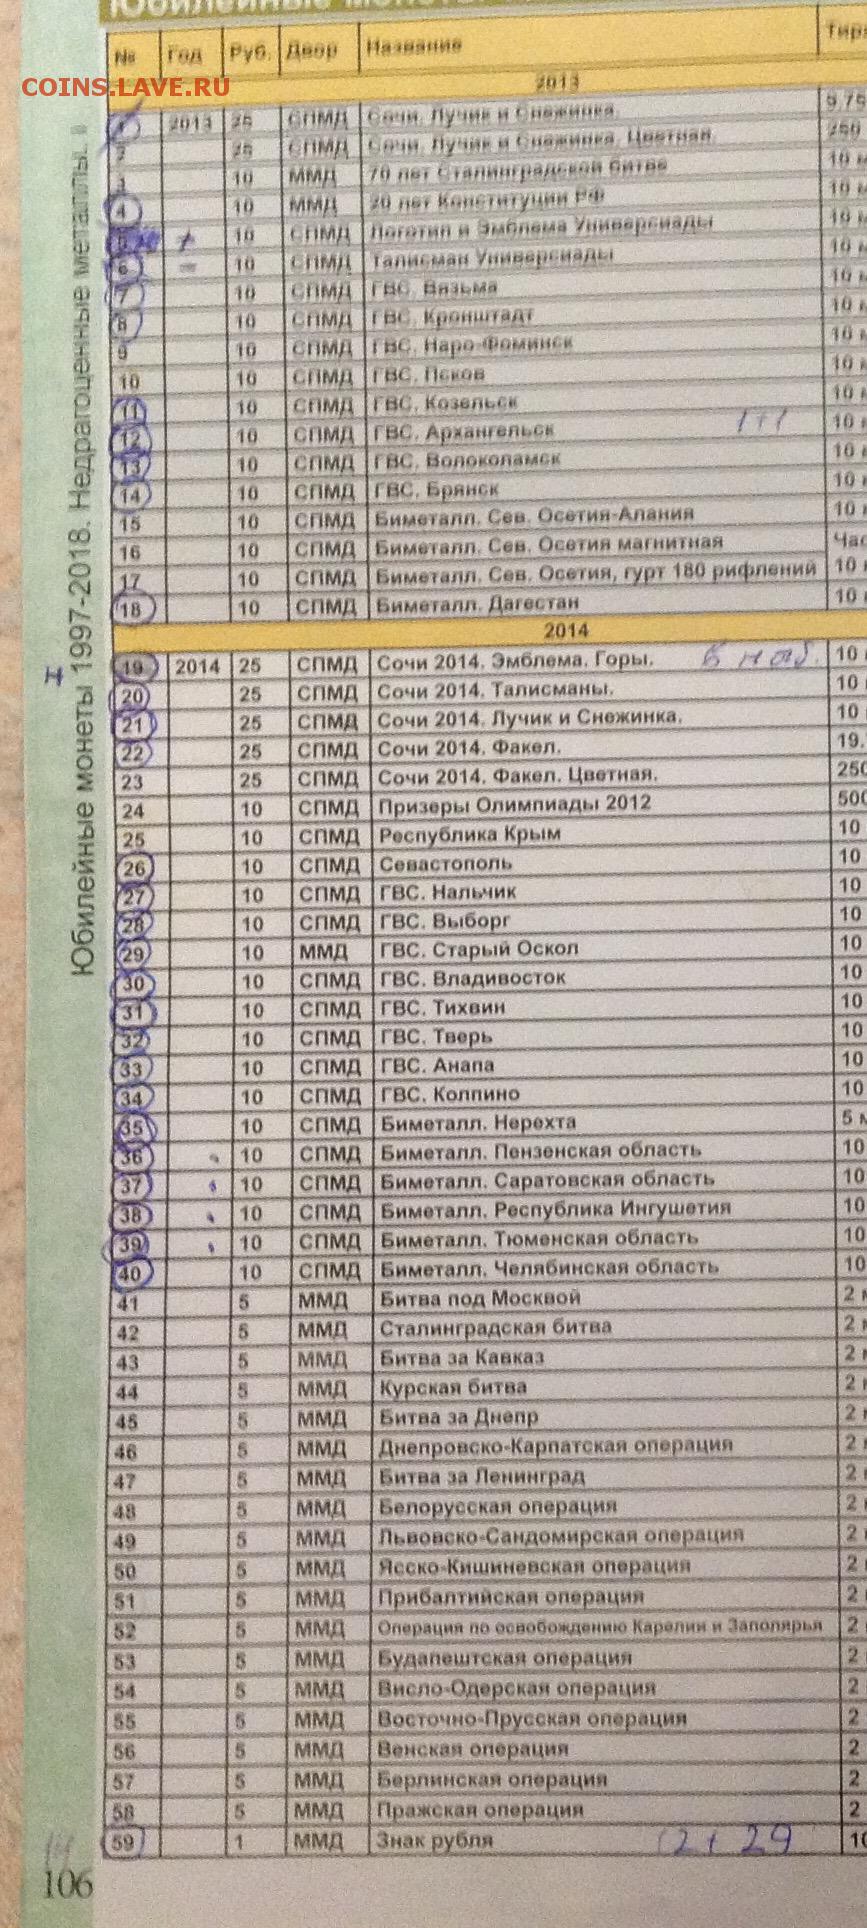 Юбилейные монеты
№ Год Руб. Двор Название Тира
COINS.LAVE.RU
2013
1 2013 25 СПМД Сочи. Лучик и Снежинка. 9.75
2 25 СПМД Сочи. Лучик и Снежинка. Цветная. 250
3 10 ММД 70 лет Сталинградской битве 10 м
4 10 ММД 20 лет Конституции РФ 10 м
5 + 10 СПМД Логотип и Эмблема Универсиады 10 м
6 = 10 СПМД Талисман Универсиады 10 м
7 10 СПМД ГВС. Вязьма 10 м
8 10 СПМД ГВС. Кронштадт 10 м
9 10 СПМД ГВС. Наро-Фоминск 10 м
10 10 СПМД ГВС. Псков 10 м
11 10 СПМД ГВС. Козельск 10 м
12 10 СПМД ГВС. Архангельск 1+1 10 м
13 10 СПМД ГВС. Волоколамск 10 м
14 10 СПМД ГВС. Брянск 10 м
15 10 СПМД Биметалл. Сев. Осетия-Алания 10 м
16 10 СПМД Биметалл. Сев. Осетия магнитная Час
17 10 СПМД Биметалл. Сев. Осетия, гурт 180 рифлений 10 м
18 10 СПМД Биметалл. Дагестан 10 м
2014
19 2014 25 СПМД Сочи 2014. Эмблема. Горы. 10
20 25 СПМД Сочи 2014. Талисманы. 10
21 25 СПМД Сочи 2014. Лучик и Снежинка. 10
22 25 СПМД Сочи 2014. Факел. 19.
23 25 СПМД Сочи 2014. Факел. Цветная. 250
24 10 СПМД Призеры Олимпиады 2012 500
25 10 СПМД Республика Крым 10
26 10 СПМД Севастополь 10
27 10 СПМД ГВС. Нальчик 10
28 10 СПМД ГВС. Выборг 10
29 10 ММД ГВС. Старый Оскол 10
30 10 СПМД ГВС. Владивосток 10
31 10 СПМД ГВС. Тихвин 10
32 10 СПМД ГВС. Тверь 10
33 10 СПМД ГВС. Анапа 10
34 10 СПМД ГВС. Колпино 10
35 10 СПМД Биметалл. Нерехта 5 м
36 10 СПМД Биметалл. Пензенская область 10
37 10 СПМД Биметалл. Саратовская область 10
38 10 СПМД Биметалл. Республика Ингушетия 10
39 10 СПМД Биметалл. Тюменская область 10
40 10 СПМД Биметалл. Челябинская область 10
41 5 ММД Битва под Москвой 2 м
42 5 ММД Сталинградская битва 2 м
43 5 ММД Битва за Кавказ 2 м
44 5 ММД Курская битва 2 м
45 5 ММД Битва за Днепр 2 м
46 5 ММД Днепровско-Карпатская операция 2 м
47 5 ММД Битва за Ленинград 2 м
48 5 ММД Белорусская операция 2 м
49 5 ММД Львовско-Сандомирская операция 2 м
50 5 ММД Ясско-Кишиневская операция 2 м
51 5 ММД Прибалтийская операция 2
52 5 ММД Операция по освобождению Карелии и Заполярья 2
53 5 ММД Будапештская операция 2
54 5 ММД Висло-Одерская операция 2
55 5 ММД Восточно-Прусская операция 2
56 5 ММД Венская операция 2
57 5 ММД Берлинская операция 2
58 5 ММД Пражская операция 2
59 1 ММД Знак рубля 2+29 10
Юбилейные монеты 1997-2018. Недрагоценные металлы.
106